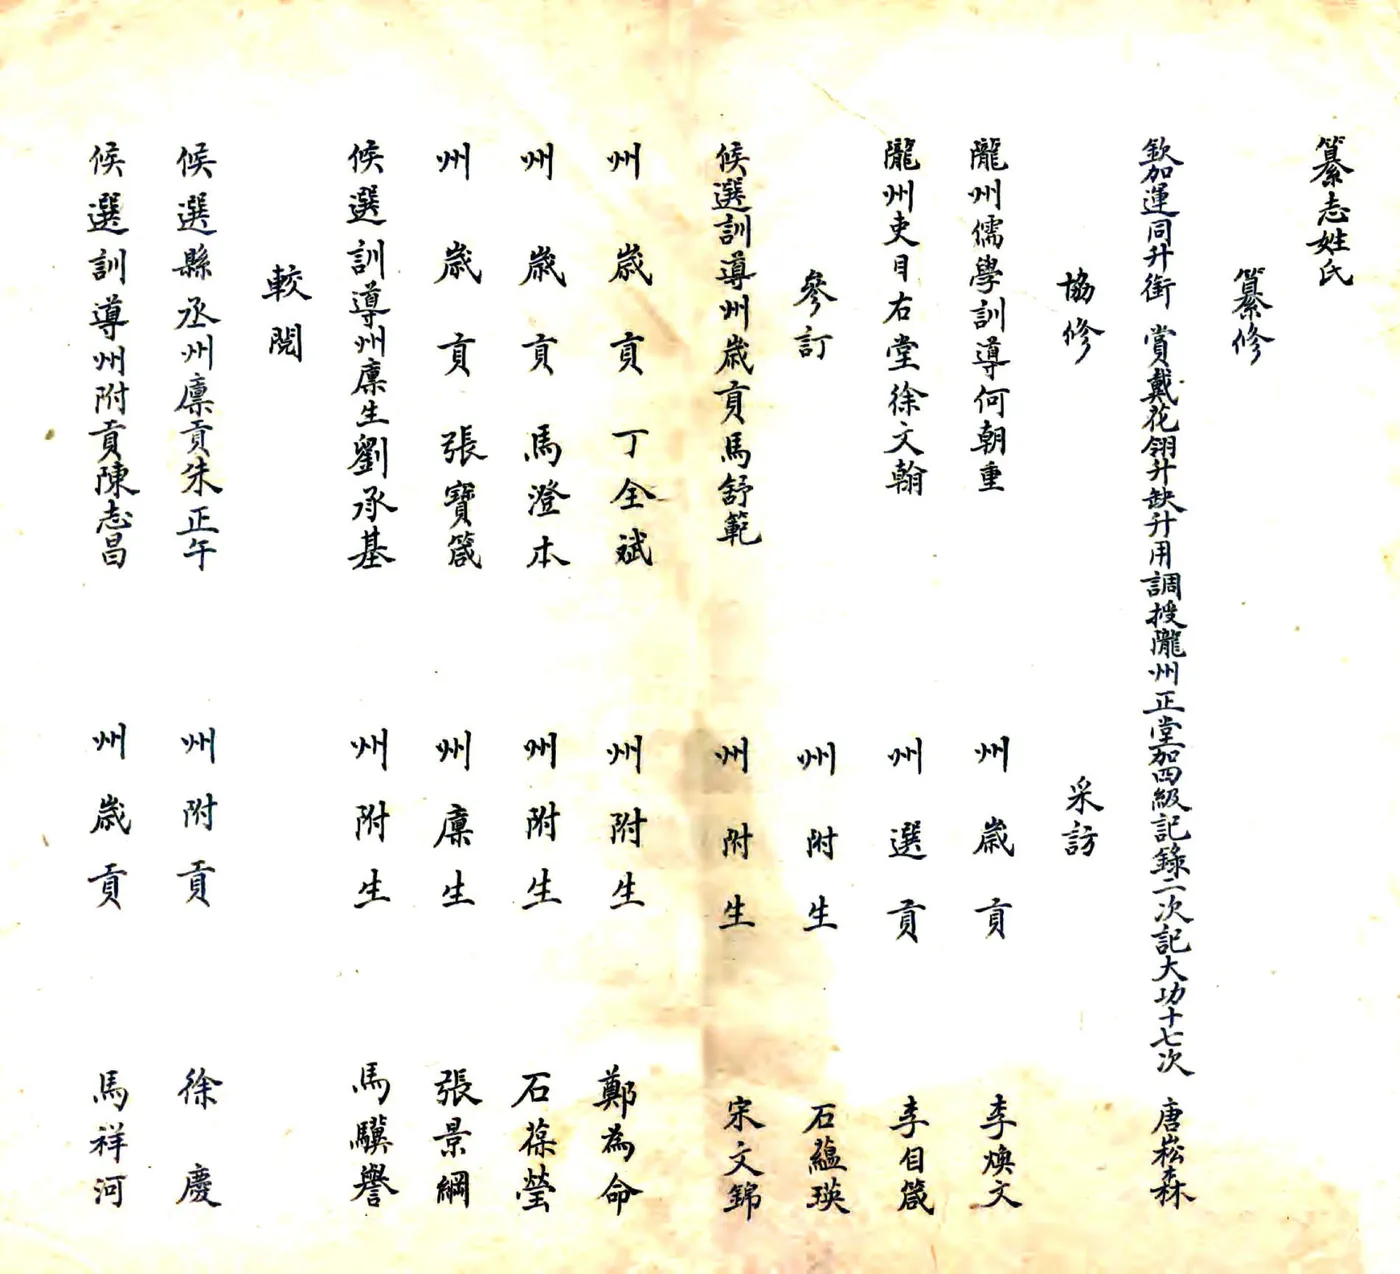 纂志姓氏
纂修
欽加運同升銜 賞戴花翎升缺升用調授隴州正堂加四級記錄二次記大功十七次 唐崧森
協修 采訪
隴州儒學訓導何朝重 州歲貢 李煥文
隴州吏目右堂徐文翰 州選貢 李自箴
參訂 州附生 石蘊瑛
候選訓導州歲貢馬舒範 州附生 宋文錦
州歲貢丁全斌 州附生 鄭為命
州歲貢馬澄本 州附生 石葆瑩
州歲貢張寶箴 州廩生 張景綱
候選訓導州廩生劉承基 州附生 馬驥譽
較閱
候選縣丞州廩貢朱正午 州附貢 徐慶
候選訓導州附貢陳志昌 州歲貢 馬祥河